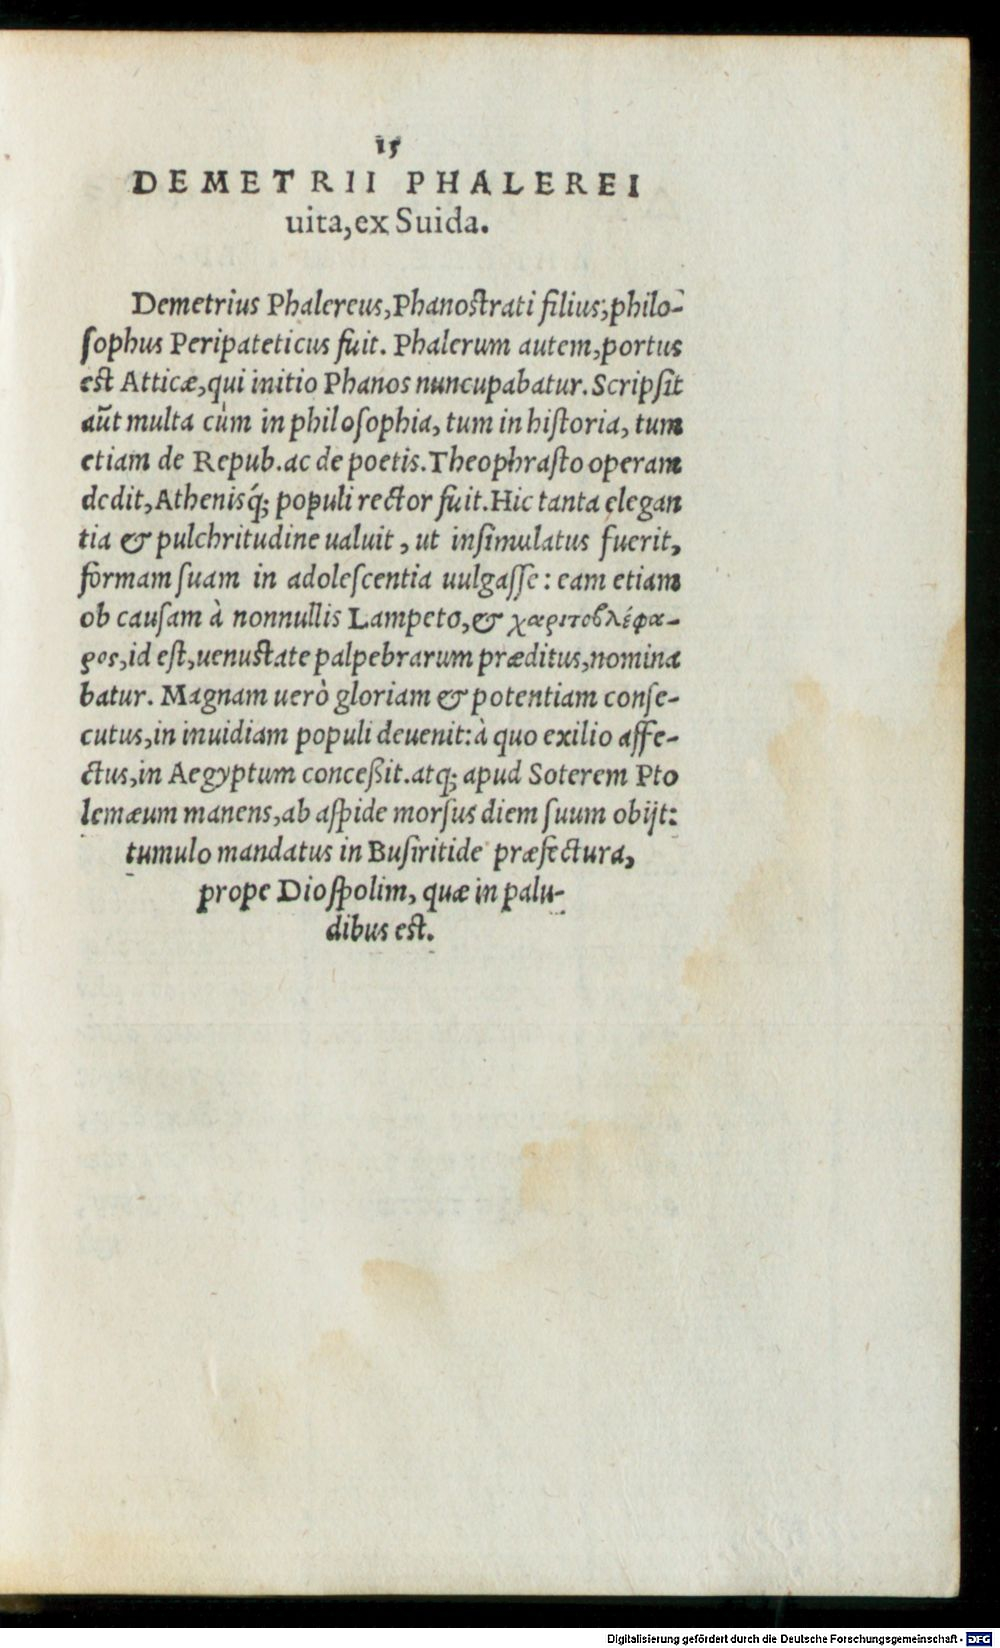 15
DEMETRII PHALEREI
uita, ex Suida.
Demetrius Phalereus, Phanostrati filius, philo-
sophus Peripateticus fuit. Phalerum autem, portus
est Atticæ, qui initio Phanos nuncupabatur. Scripsit
aūt multa cùm in philosophia, tum in historia, tum
etiam de Repub. ac de poetis. Theophrasto operam
dedit, Athenisq́; populi rector fuit. Hic tanta elegan
tia & pulchritudine ualuit, ut insimulatus fuerit,
formam suam in adolescentia uulgasse: eam etiam
ob causam à nonnullis Lampeto, & χαριτοβλέφα-
ρος, id est, uenustate palpebrarum præditus, nomina
batur. Magnam uerò gloriam & potentiam conse-
cutus, in inuidiam populi deuenit: à quo exilio affe-
ctus, in Aegyptum conceßit. atq; apud Soterem Pto
lemæum manens, ab aspide morsus diem suum obijt:
tumulo mandatus in Busiritide præfectura,
prope Diospolim, quæ in palu-
dibus est.
Digitalisierung gefördert durch die Deutsche Forschungsgemeinschaft - DFG